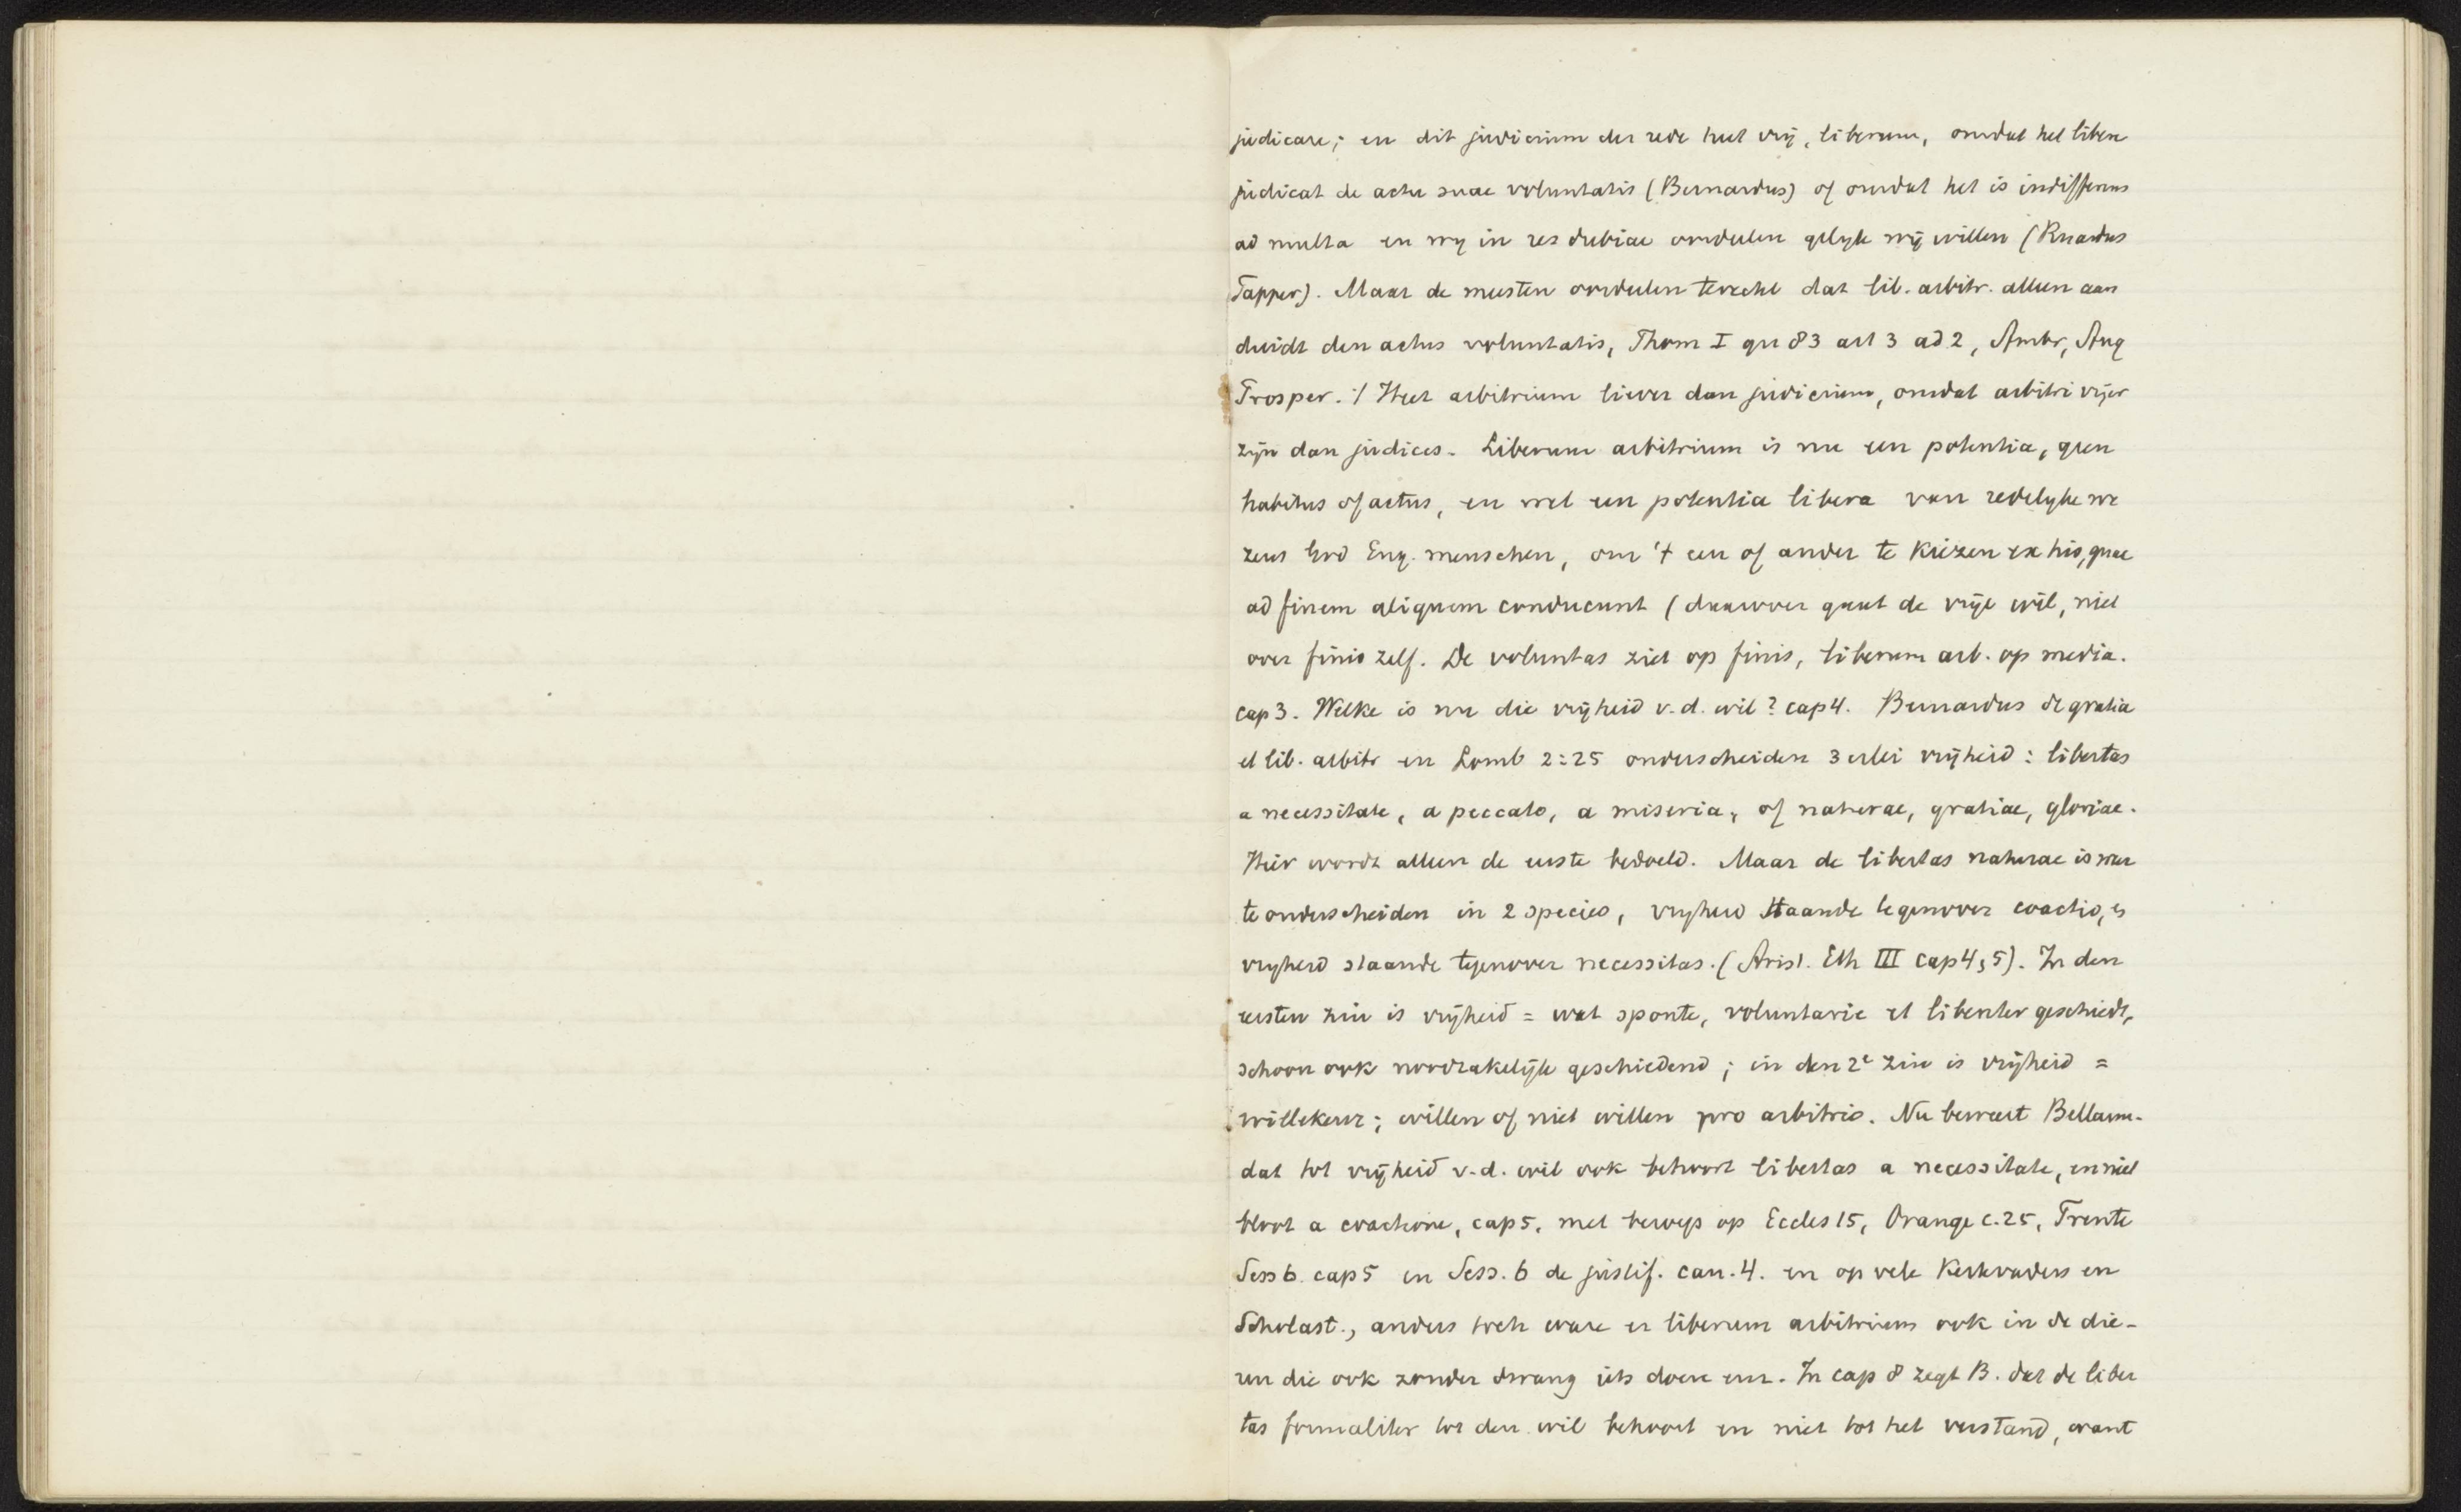 judicare; en dit judicium der rede heet vrij, liberum, omdat het libere
judicat de actu suae voluntatis (Bernardus) of omdat het is indifferens
ad multa en wy in res dubiae oordeelen gelyk wij willen (Ruardus
Tapper). Maar de meesten oordeelen terecht dat lib. arbitr. alleen aan
duidt den actus voluntatis, Thom I qu 83 art 3 ad 2, Ambr, Aug
Prosper. :/ Heet arbitrium liever dan judicium, omdat arbitri vrijer
zijn dan judices. Liberum arbitrium is nu een potentia, geen
habitus of actus, en wel een potentia libera van redelyke we
zens God Eng. menschen, om 't een of ander te kiezen ex his, quae
ad finem aliquem conducunt (daarover gaat de vrije wil, niet
over finis zelf. De voluntas ziet op finis, liberum arb. op media.
cap 3. Welke is nu die vrijheid v.d. wil? cap 4. Bernardus de gratia
et lib. arbitr en Lomb 2:25 onderscheiden 3 erlei vrijheid: libertas
a necessitate, a peccato, a miseria, of naturae, gratiae, gloriae.
Hier wordt alleen de eerste bedoeld. Maar de libertas naturae is weer
te onderscheiden in 2 species, vryheid staande tegenover coactio, en
vryheid staande tegenover necessitas. (Arist. Eth III cap 4, 5). In den
eersten zin is vrijheid = wat sponte, voluntarie et libenter geschiedt,
schoon ook noodzakelijk geschiedend; in den 2e zin is vrijheid =
willekeur; willen of niet willen pro arbitrio. Nu beweert Bellarm.
dat tot vrijheid v.d. wil ook behoort libertas a necessitate, en niet
bloot a coactione, cap 5, met bewys op Eccles 15, Orange c. 25, Trente
Sess 6. cap 5 en Sess. 6 de justif. can. 4. en op vele Kerkvaders en
Scholast., anders toch ware er liberum arbitrium ook in de die-
ren die ook zonder dwang iets doen enz. In cap 8 zegt B. dat de liber
tas formaliter tot den wil behoort en niet tot het verstand, want